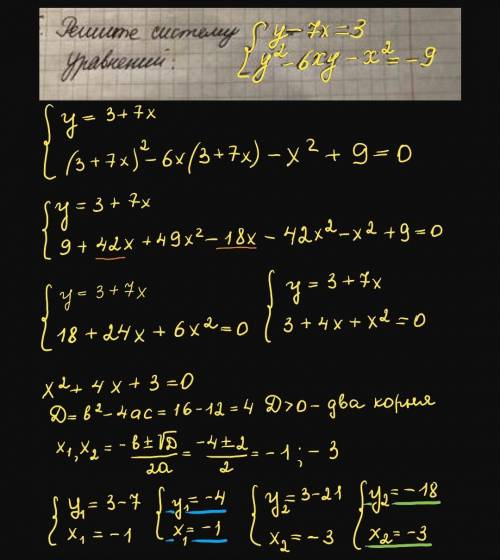 Решите систему { y - 7x = 3
уравнений: { y² - 6xy - x² = -9
{ y = 3 + 7x
{ (3+7x)² - 6x(3+7x) - x² + 9 = 0
{ y = 3 + 7x
{ 9 + 42x + 49x² - 18x - 42x² - x² + 9 = 0
{ y = 3 + 7x { y = 3 + 7x
{ 18 + 24x + 6x² = 0 { 3 + 4x + x² = 0
x² + 4x + 3 = 0
D = b² - 4ac = 16 - 12 = 4 D > 0 - два корня
x₁, x₂ = -b ± √D / 2a = -4 ± 2 / 2 = -1 ; -3
{ y₁ = 3 - 7 { y₁ = -4 { y₂ = 3 - 21 { y₂ = -18
{ x₁ = -1 { x₁ = -1 { x₂ = -3 { x₂ = -3